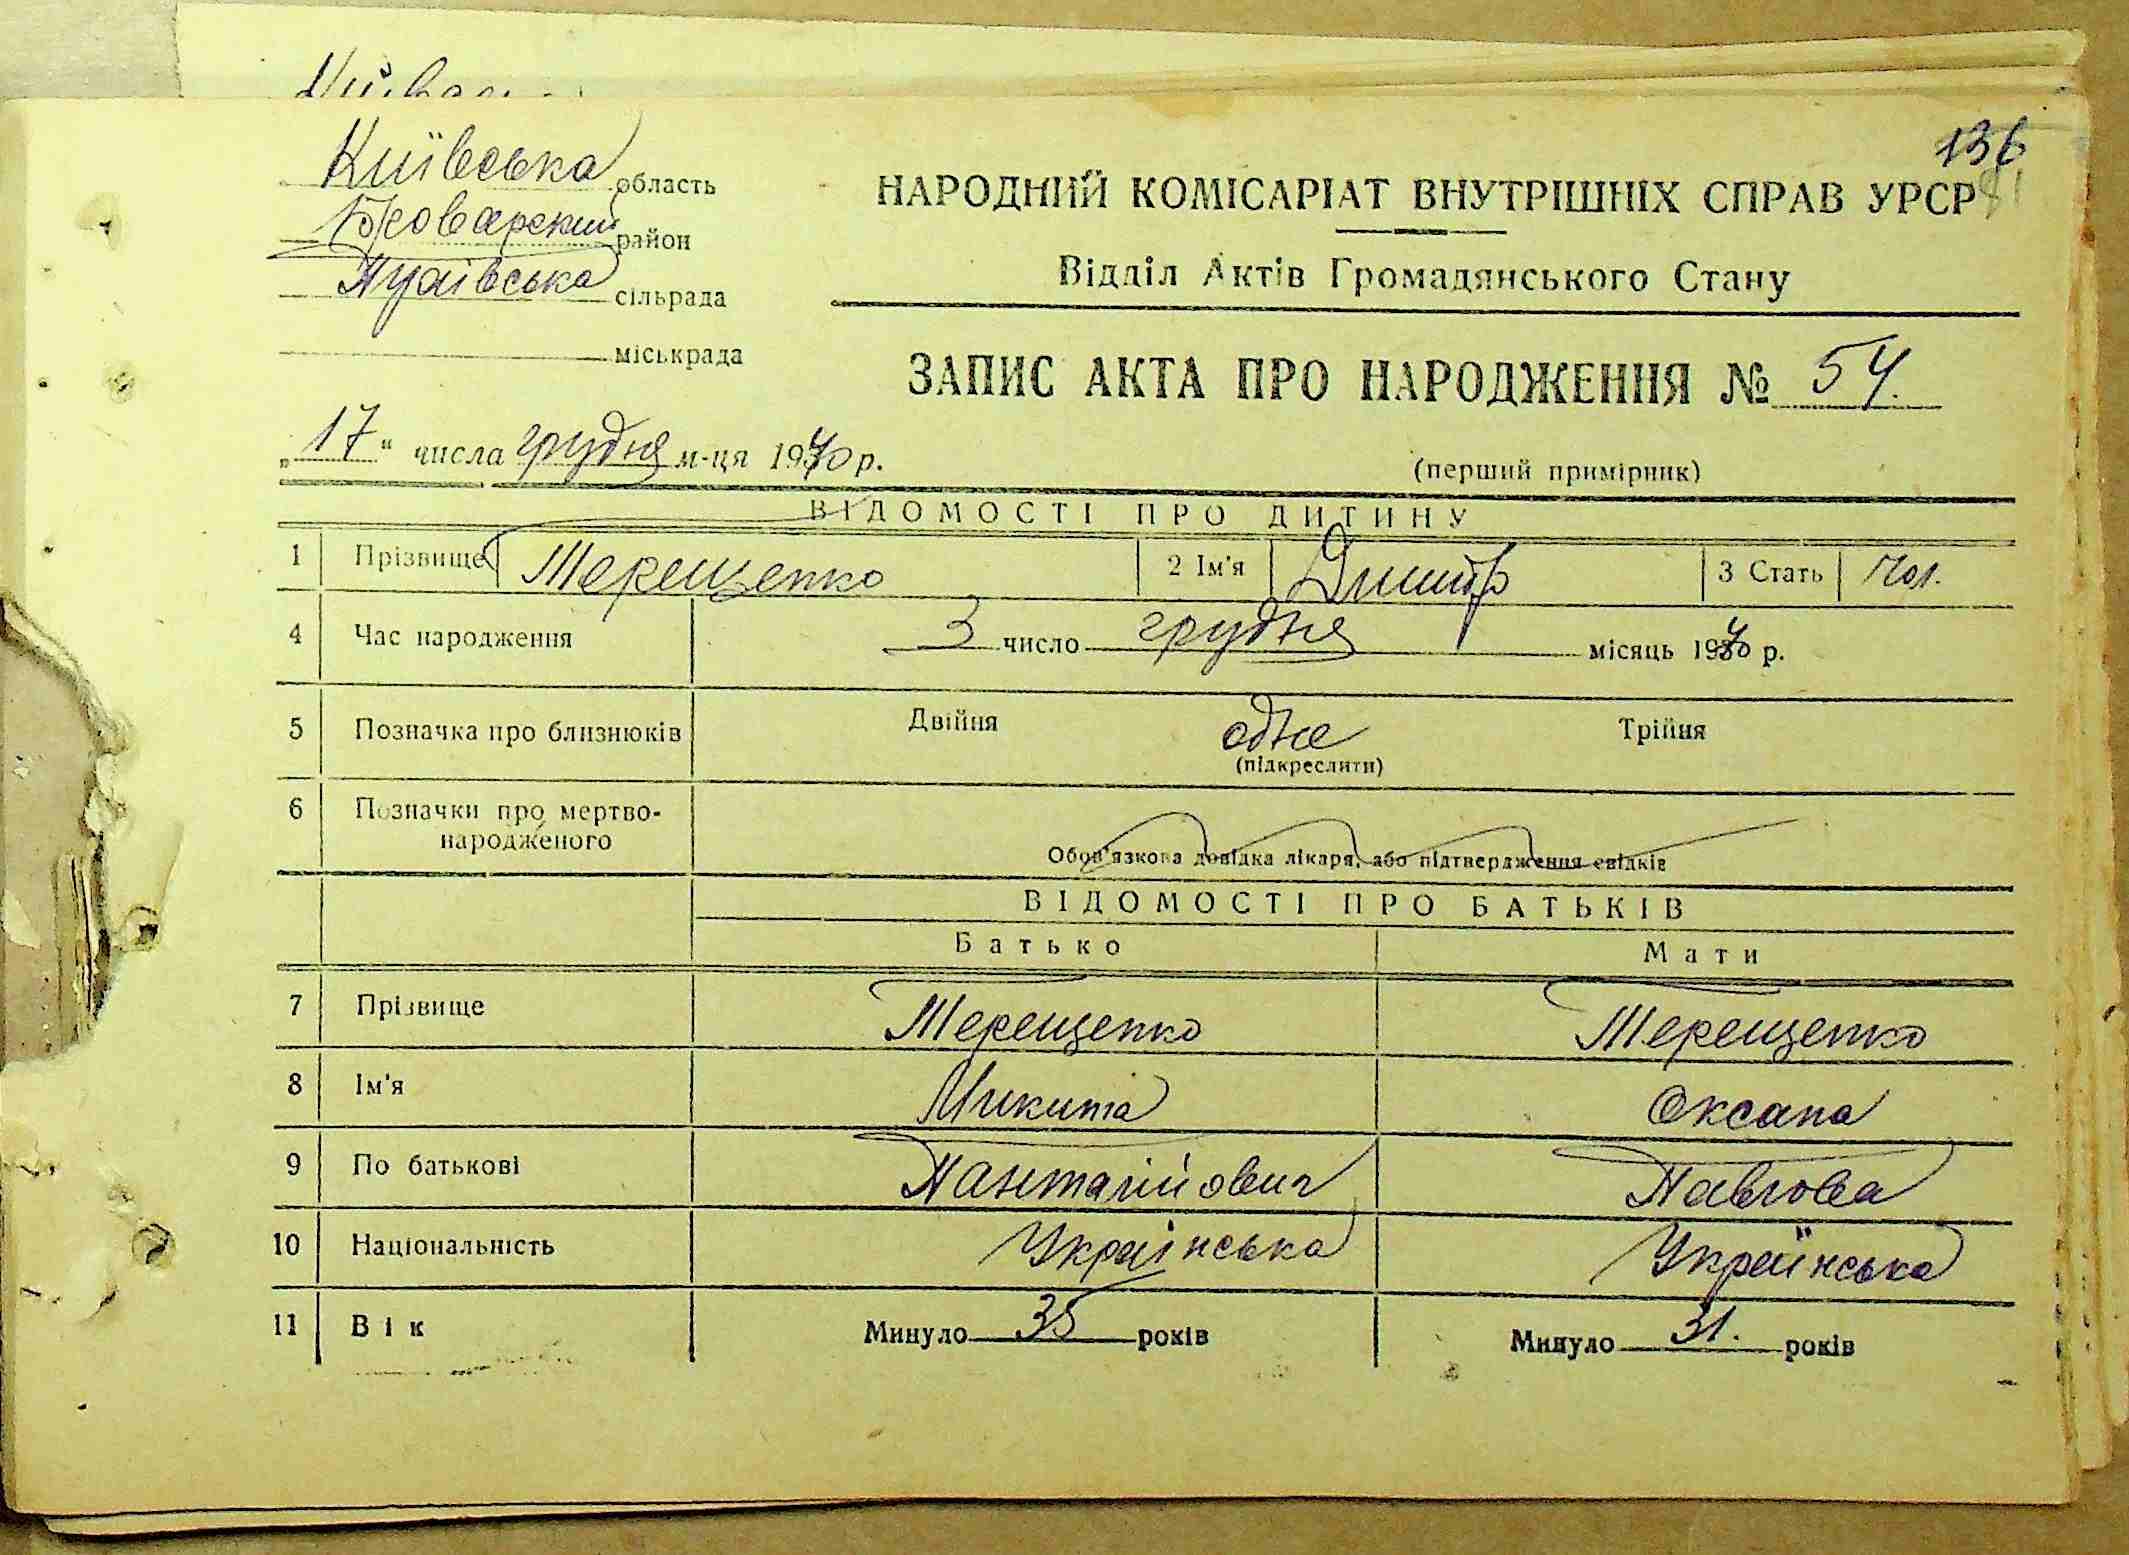 Київська область
Броварский район
Пухівська сільрада
міськрада
136
НАРОДНИЙ КОМІСАРІАТ ВНУТРІШНІХ СПРАВ УРСР
Відділ Актів Громадянського Стану
ЗАПИС АКТА ПРО НАРОДЖЕННЯ № 54.
„17“ числа грудня м-ця 1940 р.
(перший примірник)
ВІДОМОСТІ ПРО ДИТИНУ
1 Прізвище Терещенко 2 Ім'я Дмитр 3 Стать Чол.
4 Час народження 3 число грудня місяць 1940 р.
5 Позначка про близнюків Двійня одне Трійня
(підкреслити)
6 Позначки про мертво-
народженого
Обов'язкова довідка лікаря, або підтвердження свідків
ВІДОМОСТІ ПРО БАТЬКІВ
Батько Мати
7 Прізвище Терещенко Терещенко
8 Ім'я Микита Оксана
9 По батькові Панталійович Павлова
10 Національність Українська Українська
11 Вік Минуло 35 років Минуло 31. років